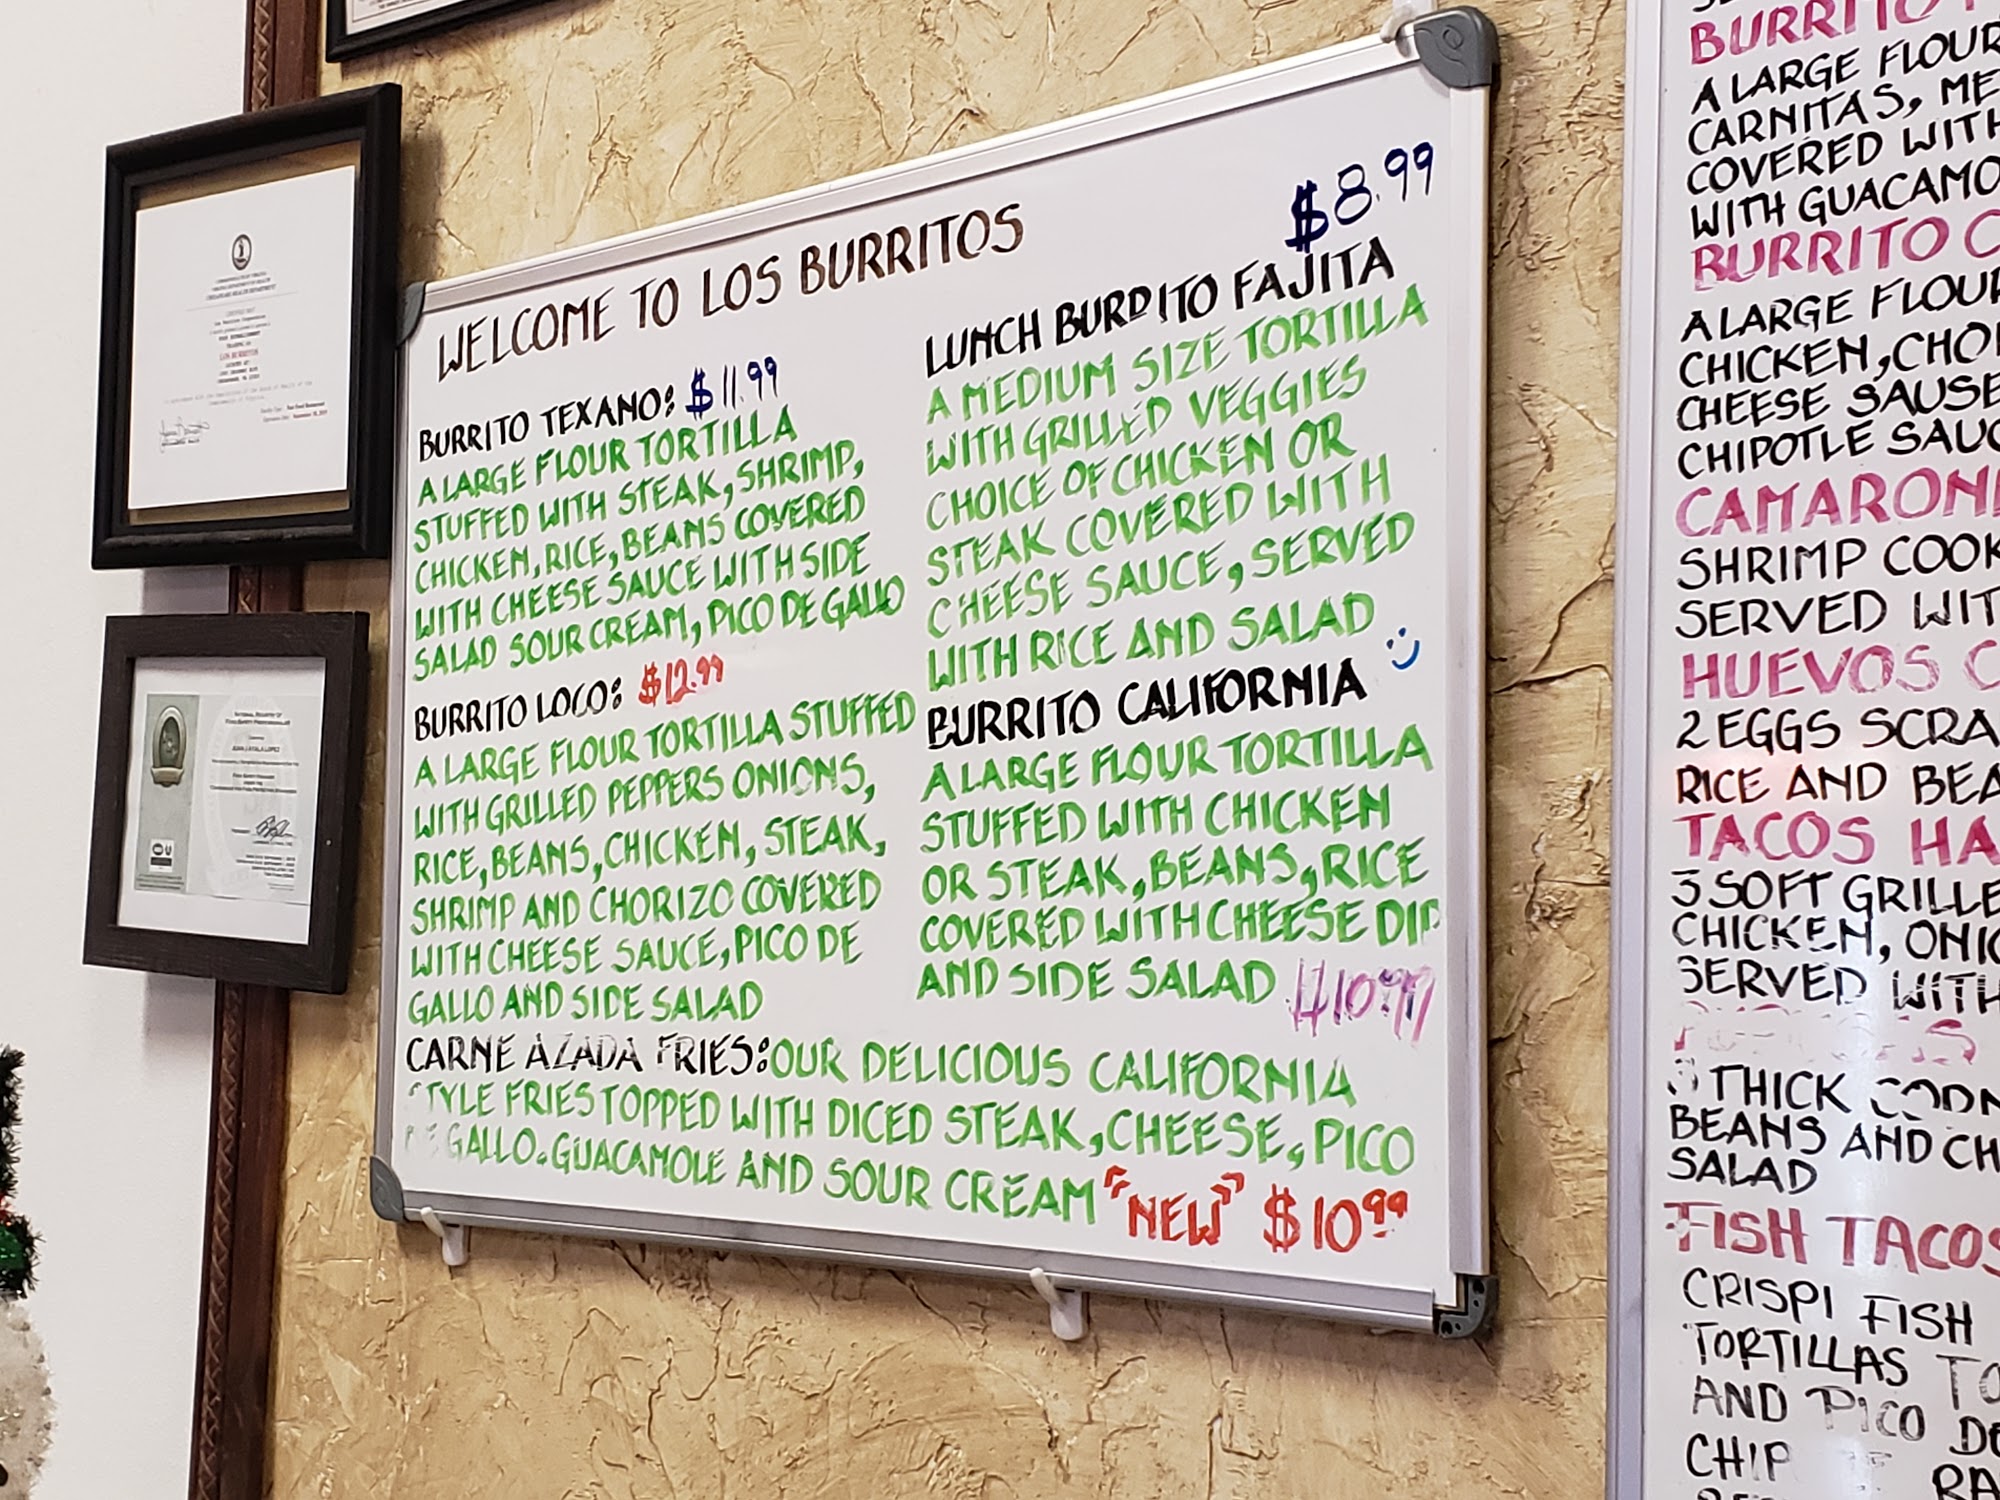 WELCOME TO LOS BURRITOS
BURRITO TEXANO: $11.99
A LARGE FLOUR TORTILLA
STUFFED WITH STEAK, SHRIMP,
CHICKEN, RICE, BEANS COVERED
WITH CHEESE SAUCE WITH SIDE
SALAD SOUR CREAM, PICO DE GALLO
BURRITO LOCO: $12.99
A LARGE FLOUR TORTILLA STUFFED
WITH GRILLED PEPPERS ONIONS,
RICE, BEANS, CHICKEN, STEAK,
SHRIMP AND CHORIZO COVERED
WITH CHEESE SAUCE, PICO DE
GALLO AND SIDE SALAD
$8.99
LUNCH BURRITO FAJITA
A MEDIUM SIZE TORTILLA
WITH GRILLED VEGGIES
CHOICE OF CHICKEN OR
STEAK COVERED WITH
CHEESE SAUCE, SERVED
WITH RICE AND SALAD
BURRITO CALIFORNIA
A LARGE FLOUR TORTILLA
STUFFED WITH CHICKEN
OR STEAK, BEANS, RICE
COVERED WITH CHEESE DIP
AND SIDE SALAD $10.99
CARNE AZADA FRIES: OUR DELICIOUS CALIFORNIA
STYLE FRIES TOPPED WITH DICED STEAK, CHEESE, PICO
DE GALLO. GUACAMOLE AND SOUR CREAM "NEW" $10.99
BURRITO
A LARGE FLOUR
CARNITAS, ME
COVERED WITH
WITH GUACAMO
BURRITO C
A LARGE FLOUR
CHICKEN, CHO
CHEESE SAUSE
CHIPOTLE SAUC
CAMARON
SHRIMP COOK
SERVED WIT
HUEVOS C
2 EGGS SCRA
RICE AND BEA
TACOS HA
3 SOFT GRILLE
CHICKEN, ONIO
SERVED WITH
3 THICK CORN
BEANS AND CH
SALAD
FISH TACOS
CRISPI FISH
TORTILLAS TO
AND PICO DE
CHIP RA
LOS BURRITOS
JUAN J AYALA LOPEZ